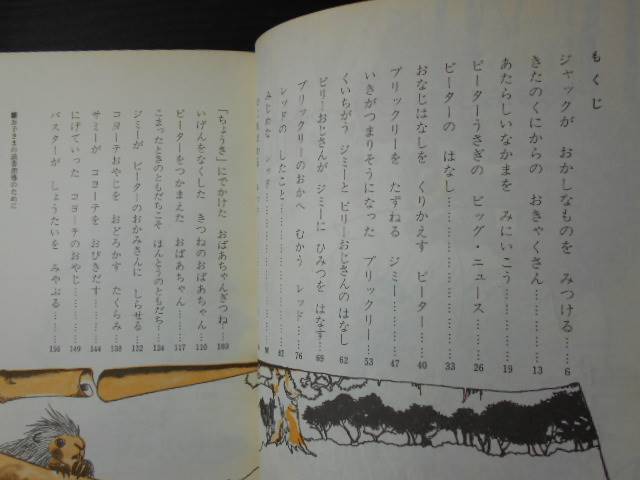 もくじ
ジャックが おかしなものを みつける……6
きたのくにからの おきゃくさん…………13
あたらしいなかまを みにいこう…………19
ピーターうさぎの ビッグ・ニュース……26
ピーターの はなし…………………………33
おなじはなしを くりかえす ピーター……40
ブリックリーを たずねる ジミー…………47
いきがつまりそうになった ブリックリー…53
くいちがう ジミーと ビリーおじさんの はなし 62
ビリーおじさんが ジミーに ひみつを はなす…69
ブリックリーのおかへ むかう レッド……76
レッドの したこと……………………………82
みじめな レッド
「ちょうき」にでかけた おばあちゃんぎつね…103
いげんをなくした きつねのおばあちゃん…110
ピーターをつかまえた おばあちゃん………117
こまったときのともだちこそ ほんとうのともだち?…124
ジミーが ピーターのおかみさんに しらせる…132
コヨーテおやじを おどろかす たくらみ…138
サミーが コヨーテを おびきだす…………144
にげていった コヨーテのおやじ……………149
バスターが しょうたいを みやぶる………156
■お子さまの読書指導のために